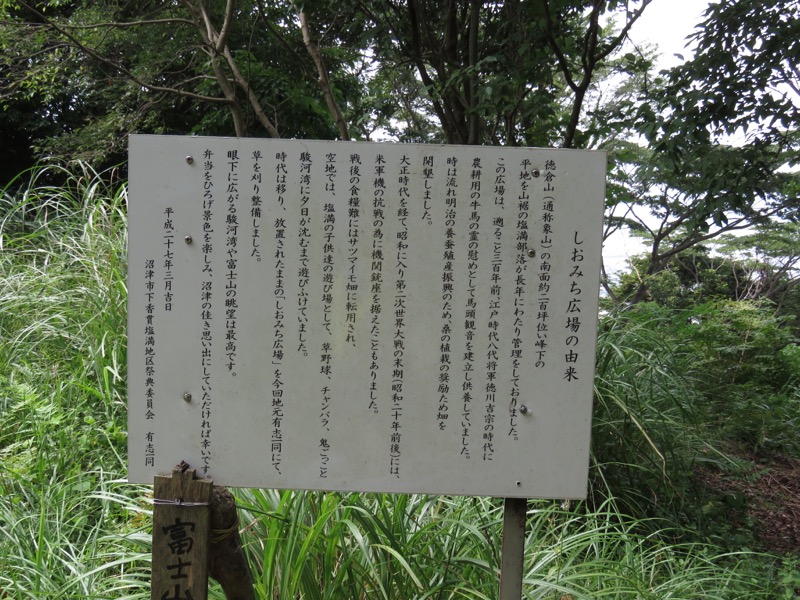 しおみち広場の由来
徳倉山（通称象山）の南面約二百坪位い峰下の
平地を山裾の塩満部落が長年にわたり管理をしておりました。
この広場は、遡ること三百年前、江戸時代八代将軍徳川吉宗の時代に
農耕用の牛馬の霊の慰めとして馬頭観音を建立し供養していました。
時は流れ明治の養蚕殖産振興のため、桑の植栽の奨励ため畑を
開墾しました。
大正時代を経て、昭和に入り第二次世界大戦の末期（昭和二十年前後）には、
米軍機の抗戦の為に機関銃座を据えたこともありました。
戦後の食糧難にはサツマイモ畑に転用され、
空地では、塩満の子供達の遊び場として、草野球、チャンバラ、鬼ごっこと
駿河湾に夕日が沈むまで遊びふけていました。
時代は移り、放置されたままの「しおみち広場」を今回地元有志一同にて、
草を刈り整備しました。
眼下に広がる駿河湾や富士山の眺望は最高です。
弁当をひろげ景色を楽しみ、沼津の佳き思い出にしていただければ幸いです。
平成二十七年三月吉日
沼津市下香貫塩満地区祭典委員会　有志一同
富士山